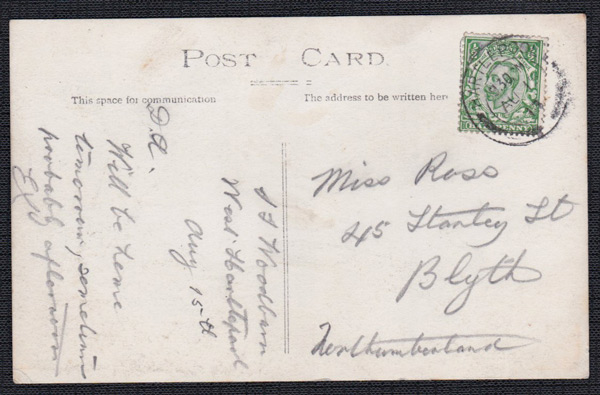 POST CARD.
This space for communication
The address to be written here
PENNY
SS Woodburn
West Hartlepool
Aug 15th
D.A.
Will be home
tomorrow, sometime
probably afternoon
Miss Ross
45 Stanley St
Blyth
Northumberland